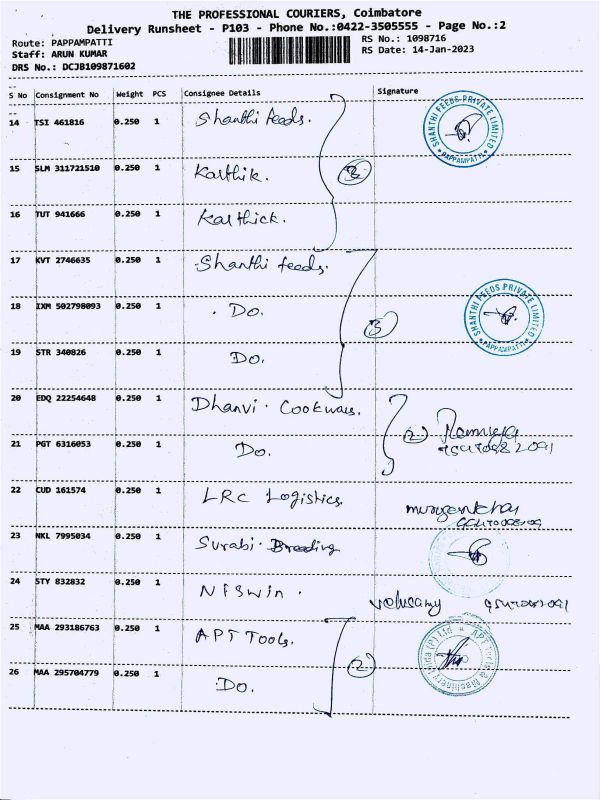 THE PROFESSIONAL COURIERS, Coimbatore
Delivery Runsheet - P103 - Phone No.:0422-3505555 - Page No.:2
Route: PAPPAMPATTI
RS No.: 1098716
Staff: ARUN KUMAR
RS Date: 14-Jan-2023
DRS No.: DCJB109871602
S No Consignment No Weight PCS Consignee Details Signature
14 TSI 461816 0.250 1 Shanthi feeds.
SHANTHI FEEDS PRIVATE LIMITED PAPPAMPATTI
15 SLM 311721510 0.250 1 Karthik. 3
16 TUT 941666 0.250 1 Karthick.
17 KVT 2746635 0.250 1 Shanthi feeds.
18 IXM 502798093 0.250 1 Do. 3
SHANTHI FEEDS PRIVATE LIMITED PAPPAMPATTI
19 STR 340826 0.250 1 Do.
20 EDQ 22254648 0.250 1 Dhanvi. Cookwars. 2
21 PGT 6316053 0.250 1 Do.
22 CUD 161574 0.250 1 LRC Logistics
23 NKL 7995034 0.250 1 Surabi. Breeding
24 STY 832832 0.250 1
25 MAA 293186763 0.250 1 APT Tools.
APT Tools & Machinery India (P) Ltd
26 MAA 295704779 0.250 1 Do. 2